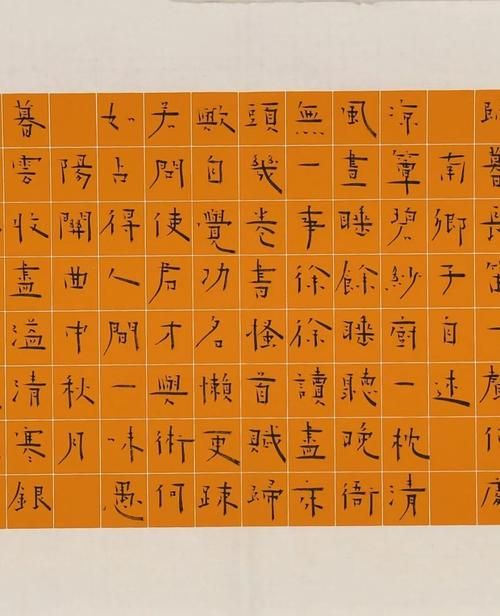 暮長笛一何處
南鄉子自述
涼簟碧紗廚一枕清
風晝睡餘睡聽晚衙
無一事徐徐讀盡床
頭幾卷書搔首賦歸
歟自覺功名懶更踈
若問使君才與術何
如占得人間一味愚
陽關曲中秋月
暮雲收盡溢清寒銀